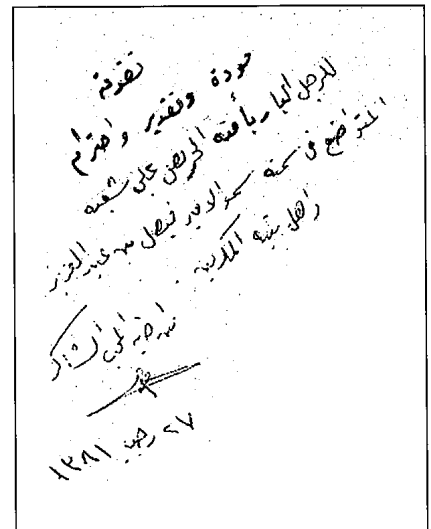 تقدمة
مودة وتقدير واحترام
للرجل البار بأمته الحريص على شعبه
المتواضع في سمو الامير فيصل بن عبد العزيز
اهل بيته المكرمين
من اخيه المحب الشاكر
٢٧ رجب ١٣٨١